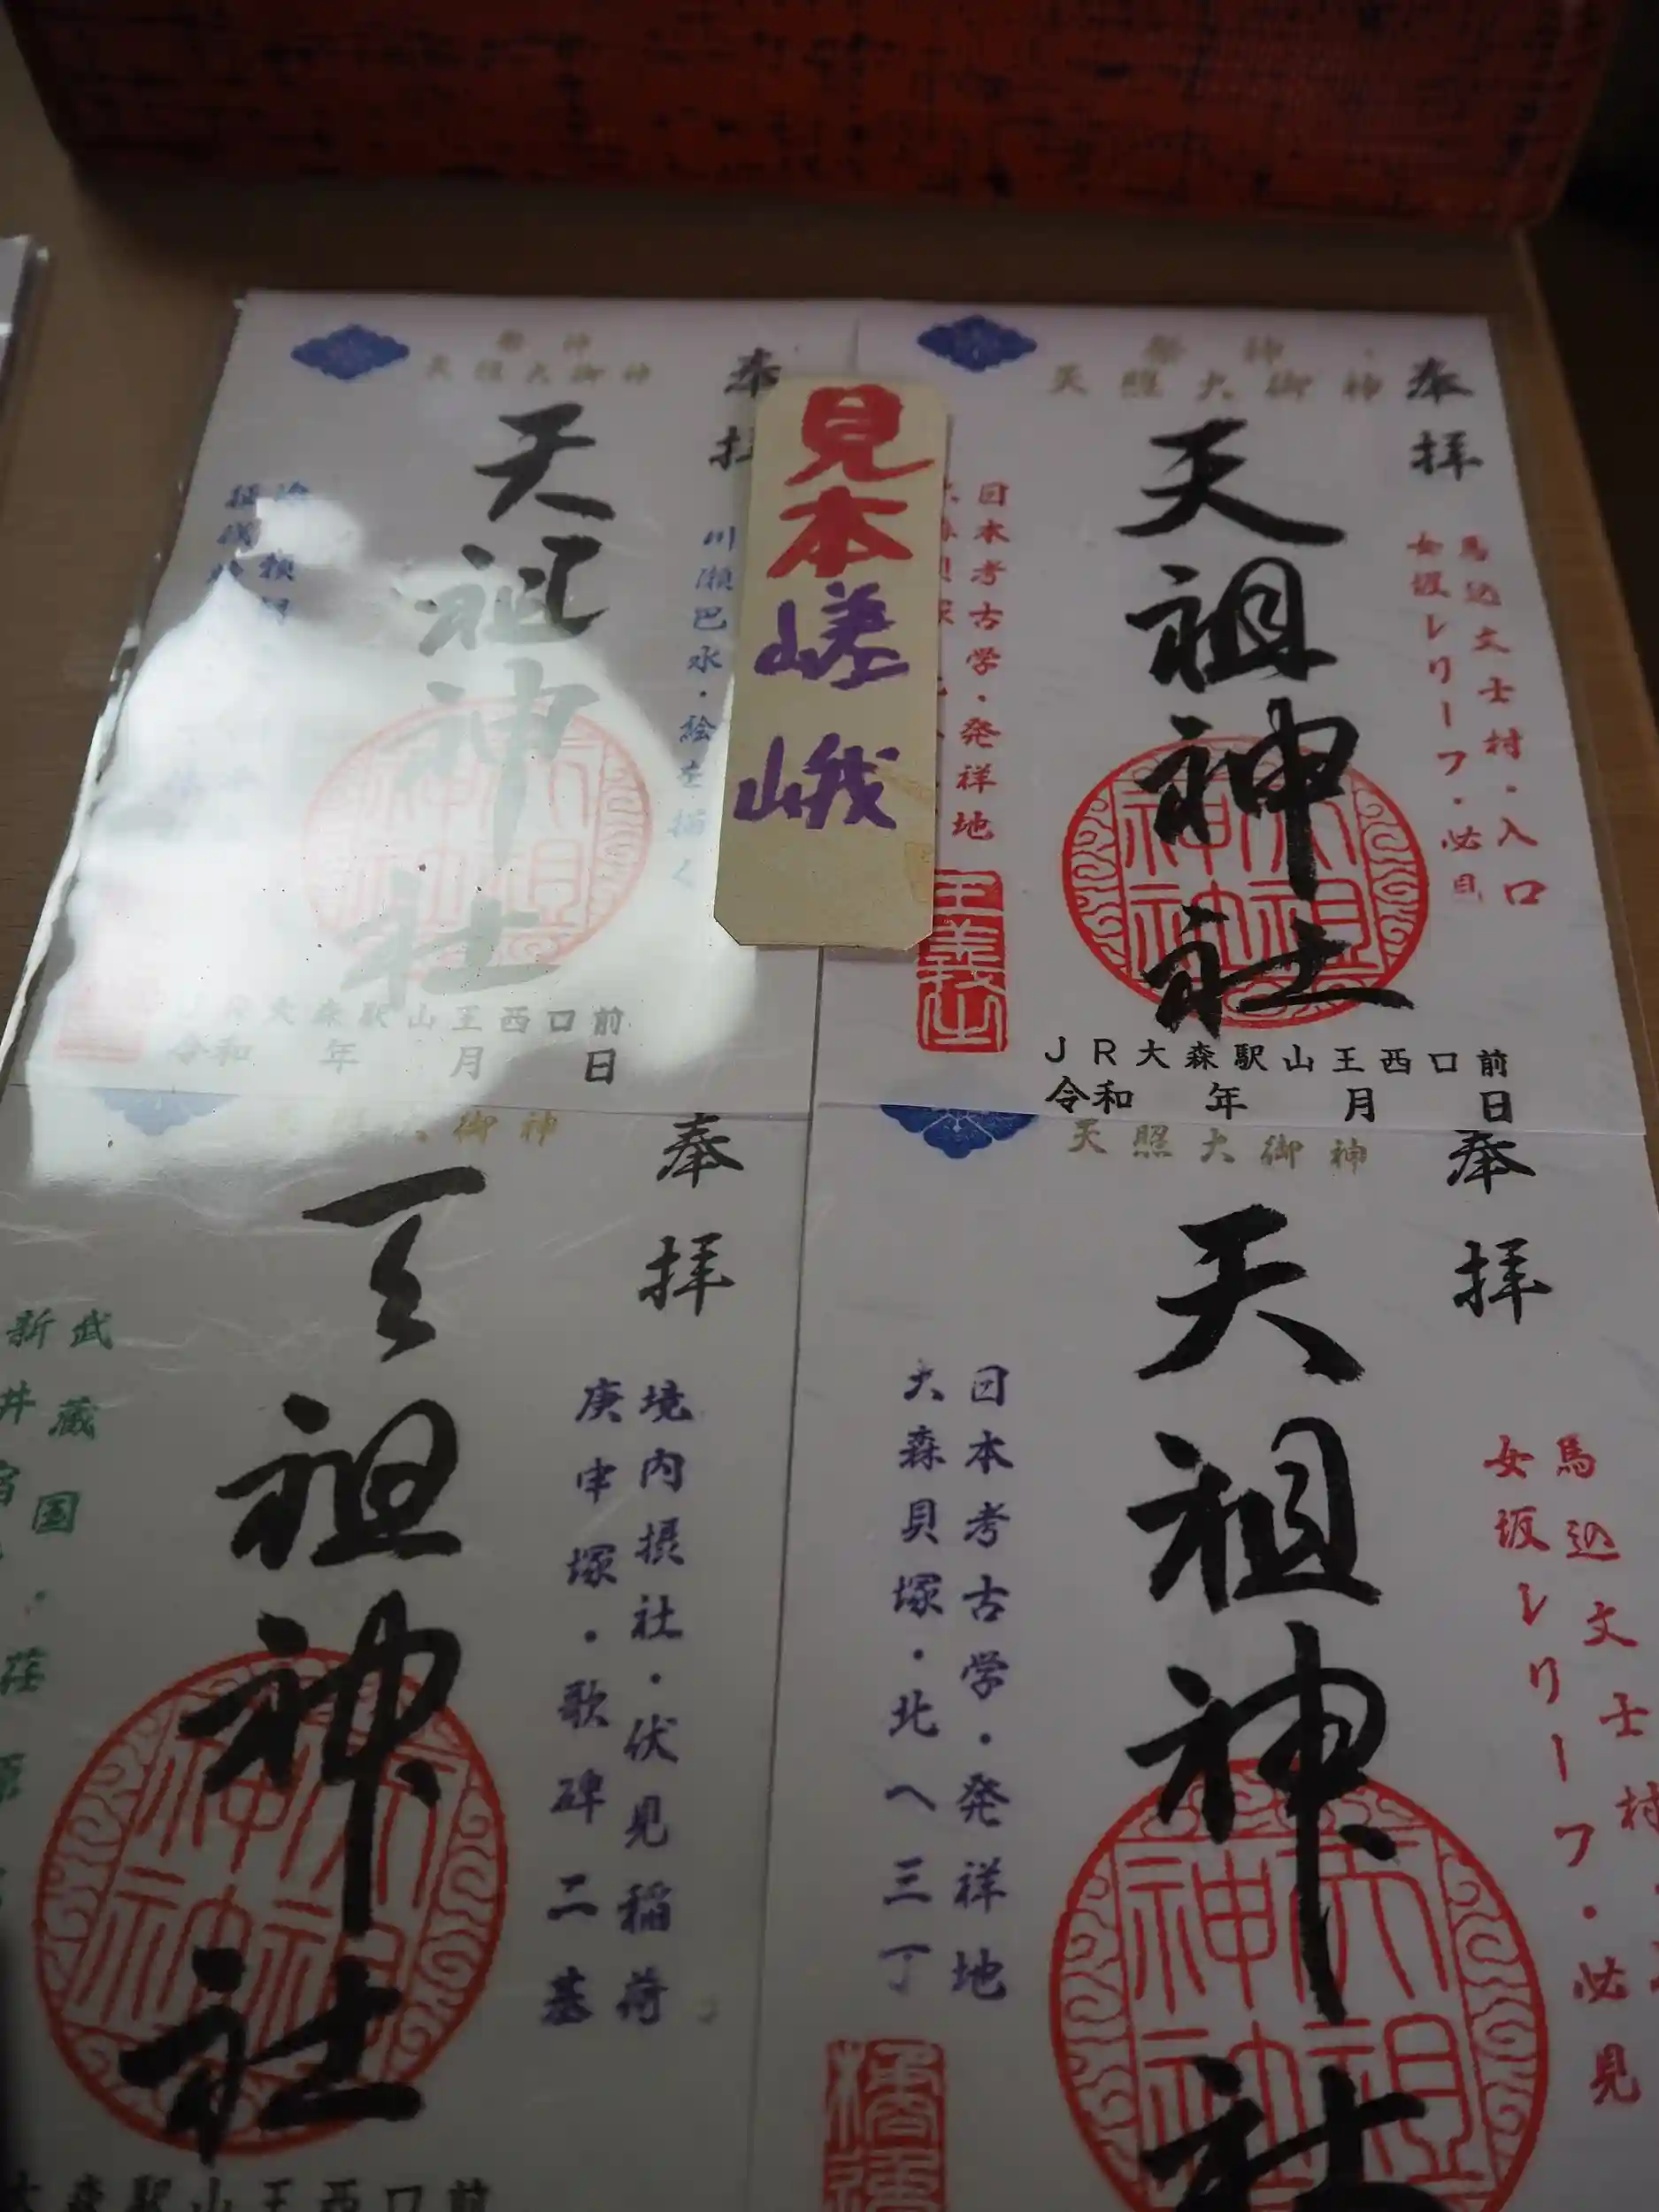 奉拝
祭神
天照大御神
馬込文士村・入口
女坂レリーフ・必見
天祖神社
日本考古学・発祥地
王羲之
JR大森駅山王西口前
令和 年 月 日
見本
嵯峨
奉
祭神
天照大御神
川瀬巴水・絵を描く
天祖神社
JR大森駅山王西口前
令和 年 月 日
奉拝
天照大御神
馬込文士村
女坂レリーフ・必見
天祖神社
日本考古学・発祥地
大森貝塚・北へ三丁
奉拝
御神
境内摂社・伏見稲荷
庚申塚・歌碑二基
天祖神社
武蔵国
新井宿
大森駅山王西口前